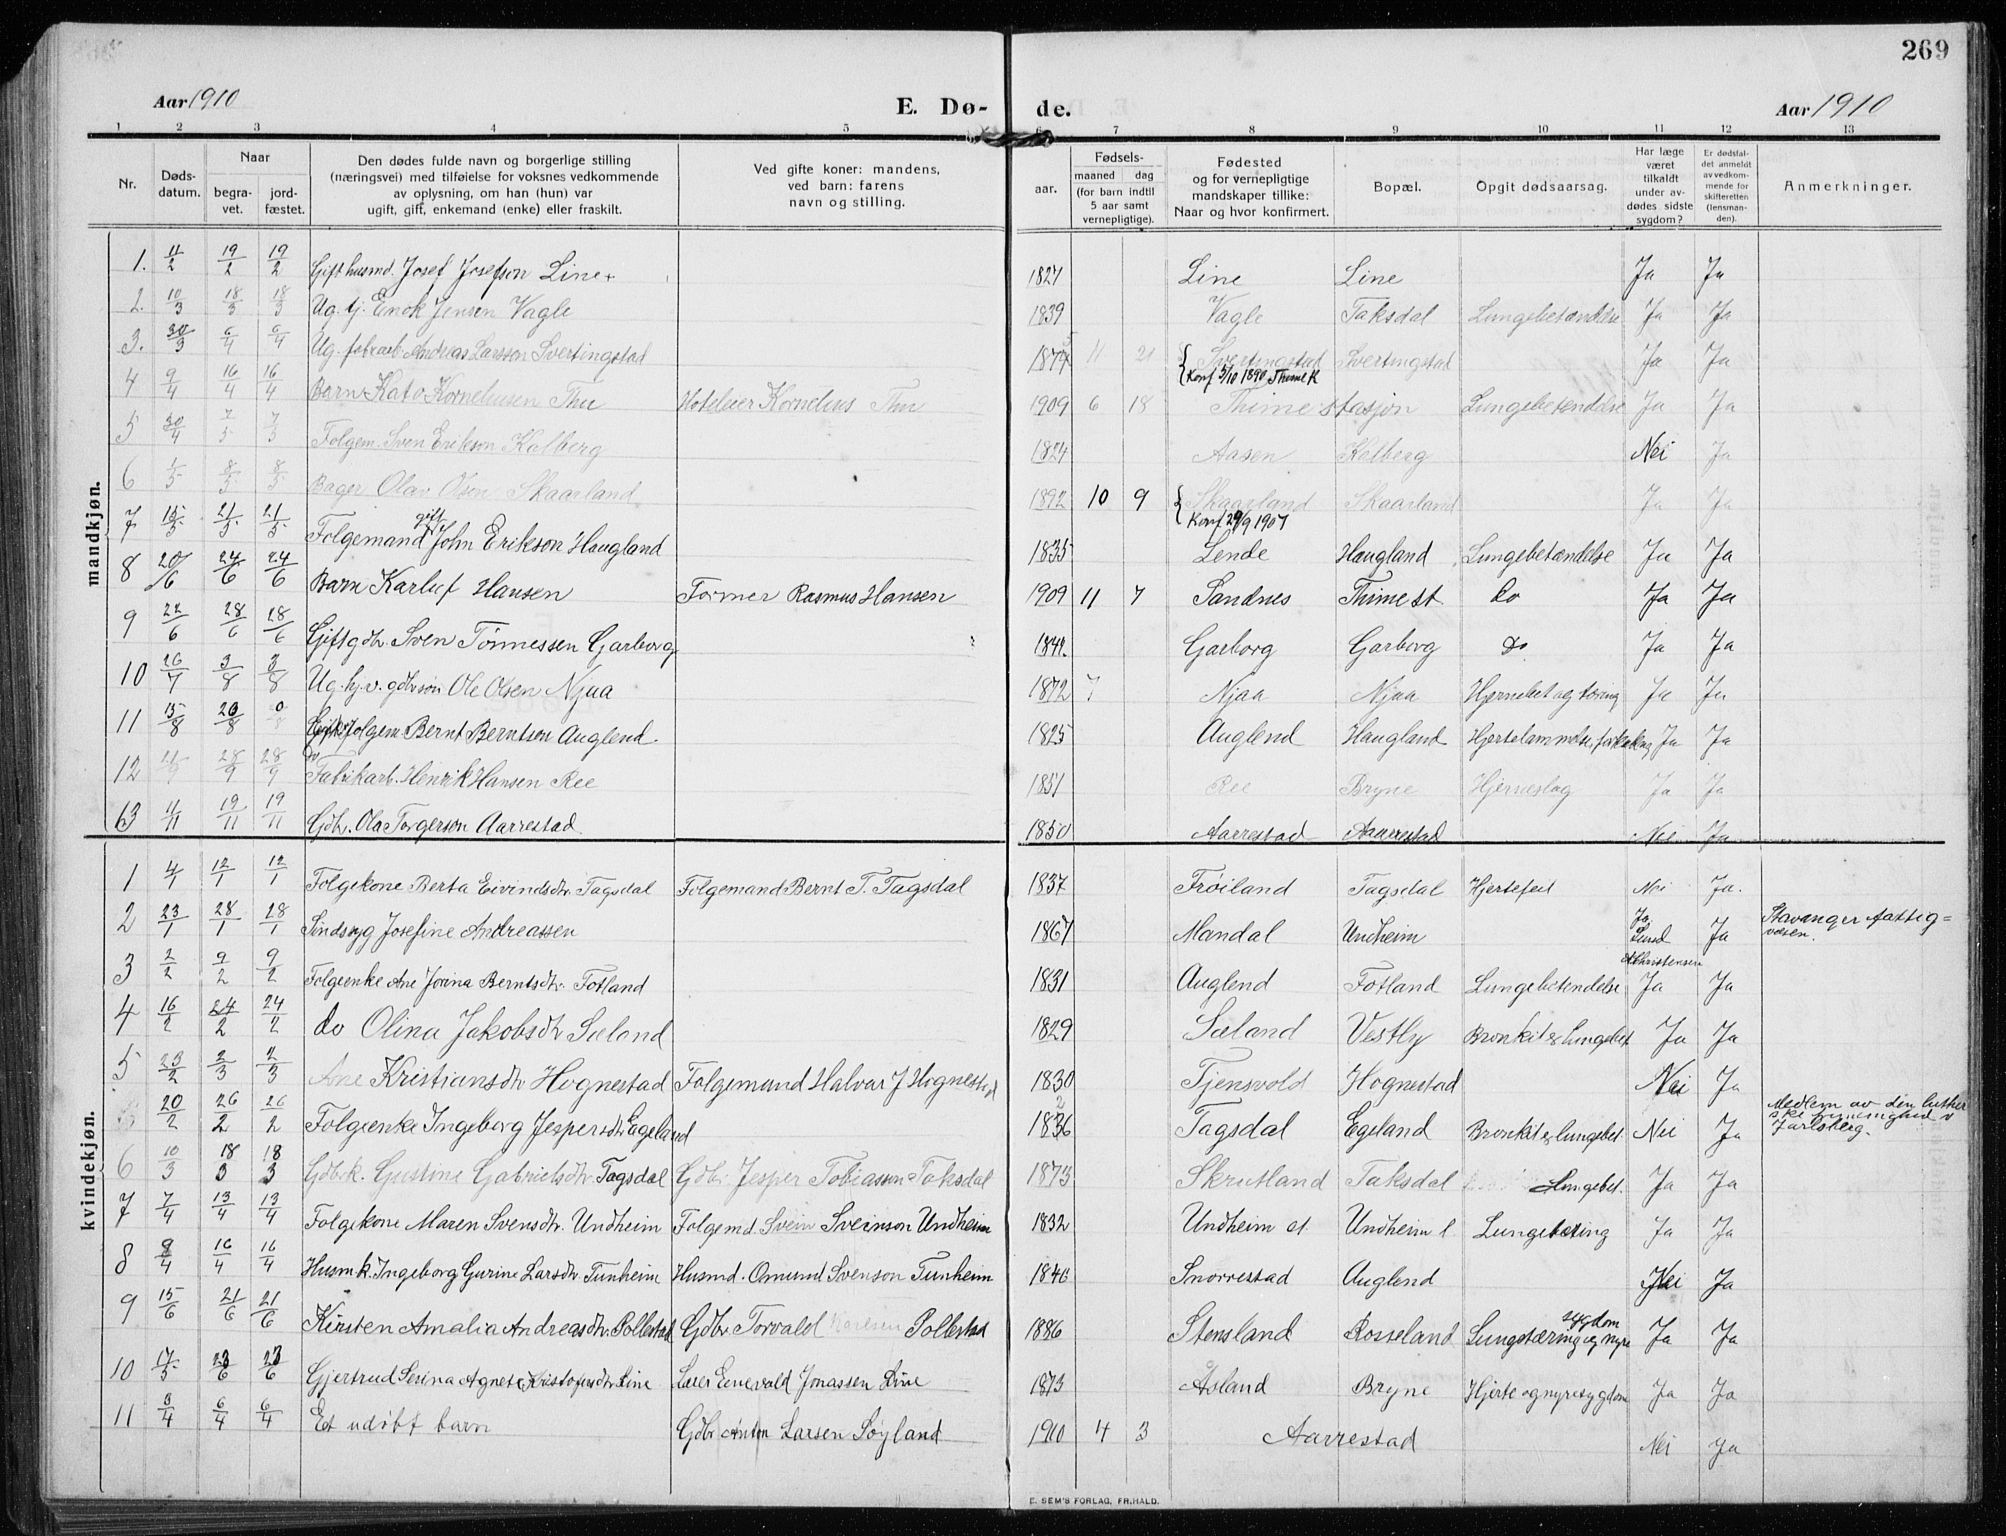 269
Aar 1910 E. Dø- de. Aar 1910
1 2 3 4 5 6 7 8 9 10 11 12 13
Nr. Dødsdatum. Naar begravet. jordfæstet. Den dødes fulde navn og borgerlige stilling (næringsvei) med tilføielse for voksnes vedkommende av oplysning, om han (hun) var ugift, gift, enkemand (enke) eller fraskilt. Ved gifte koner: mandens, ved barn: farens navn og stilling. aar. Fødsels- maaned dag (for barn indtil 5 aar samt vernepligtige). Fødested og for vernepligtige mandskaper tillike: Naar og hvor konfirmert. Bopæl. Opgit dødsaarsag. Har læge været tilkaldt under avdødes sidste sygdom? Er dødsfaldet anmeldt av vedkommende for skifteretten (lensmanden). Anmerkninger.
mandkjøn.
1. 11/2 19/2 19/2 Gift husmd. Josef Josefson Line 1827 Line Line Ja Ja
2. 10/3 18/3 18/3 Ug. tj. Enok Jensen Vagle 1839 Vagle Taksdal Lungebetændelse Ja Ja
3. 30/3 6/4 6/4 Ug. fabrarb. Andreas Larsson Svertingstad 1874 5 11 21 Svertingstad Konf 5/10 1890 Thime K Svertingstad Ja Ja
4 9/4 16/4 16/4 Barn Kato Korneliusen Thu Hoteleier Kornelius Thu 1909 6 18 Thime stasjon Lungebetendelse Ja Ja
5 30/4 7/5 7/5 Folgem. Sven Erikson Kalberg 1824 Aasen Kalberg Nei Ja
6 1/5 8/5 8/5 Bager Olav Olsen Skaarland 1892 10 9 Skaarland Konf 29/9 1907 Skaarland Ja Ja
7 15/5 21/5 21/5 Folgemand gift John Erikson Haugland 1835 Lende Haugland Lungebetændelse Ja Ja
8 20/6 24/6 24/6 Barn Karluf Hansen Former Rasmus Hansen 1909 11 7 Sandnes Thime st do Ja Ja
9 22/6 28/6 28/6 Gift gdbr Sven Tønnessen Garborg 1841 Garborg Garborg do Ja Ja
10 26/7 3/8 3/8 Ug. hj.v. gdbrsøn Ole Olsen Njaa 1872 7 Njaa Njaa Hjernebet og tæring Ja Ja
11 15/8 20/8 Gift folgem Bernt Berntson Auglend 1825 Auglend Haugland Hjertelammelse, forkalkng Ja Ja
12 28/9 28/9 do Fabrikarb. Henrik Hansen Ree 1851 Ree Bryne Hjerneslag Ja Ja
13 11/11 19/11 19/11 Gdbr. Ola Torgerson Aarrestad 1850 Aarrestad Aarrestad Nei Ja
kvindekjøn.
1 4/1 12/1 12/1 Folgekone Berta Eivindsdtr. Tagsdal Folgemand Bernt T. Tagsdal 1837 Frøiland Tagsdal Hjertefeil Nei Ja.
2 23/1 28/1 28/1 Sindsyg Josefine Andreassen 1867 Mandal Undheim Ja Lund AChristensen Ja Stavanger fattigvæsen.
3 2/2 9/2 9/2 Folgeenke Ane Jorina Berntsdtr. Fotland 1831 Auglend Fotland Lungebetendelse Ja Ja
4 16/2 24/2 24/2 do Olina Jakobsdtr Sæland 1829 Sæland Vestly Bronkit & lungebet Ja Ja
5 23/2 2/3 2/3 Ane Kristiansdtr Hognestad Folgemand Halvar J Hognestad 1830 Tjensvold Hognestad Nei Ja
20/2 26/2 26/2 Folgeenke Ingeborg Jespersdtr Egeland 1836 2 Tagsdal Egeland Bronkit & lungebet. Nei Ja Medlem av den lutherske frimenighed v Jarlsberg.
6 10/3 18/3 18/3 Gdbk. Gustine Gabrielsdtr. Tagsdal Gdbr Jesper Tobiasson Taksdal 1873 Skrutland Taksdal Lungebet. Ja Ja
7 7/4 13/4 13/4 Folgekone Maren Svensdtr. Undheim Folgemd. Svein Sveinson Undheim 1832 Undheim Undheim Lungebeting Ja Ja
8 9/4 16/4 16/4 Husmk. Ingeborg Gurine Larsdtr Tunheim Husmd. Omund Svenson Tunheim 1846 Snorrestad Auglend Nei Ja
9 15/6 21/6 21/6 Kirsten Amalia Andreasdtr. Pollestad Gdbr Torvald Karlsen Pollestad 1886 Stensland Rosseland Lungetæring og nyre sygdom Ja Ja
10 17/5 23/6 23/6 Gjertrud Serina Agnete Kristofersdtr Line Leier Enevald Jonassen Line 1873 Åsland Bryne Hjerte og nyresygdom Ja Ja
11 3/4 6/4 6/4 Et udøbt barn Gdbr Anton Larsen Søyland 1910 4 3 Aarrestad Nei Ja
E. SEM'S FORLAG, FR.HALD.